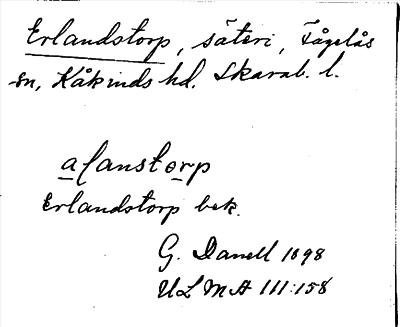 Erlandstorp, säteri, Fågelås
sn, Kåkinds hd. Skarab. l.
a lanstorp
Erlandstorp bek.
G. Danell 1898
ULMA 111:158